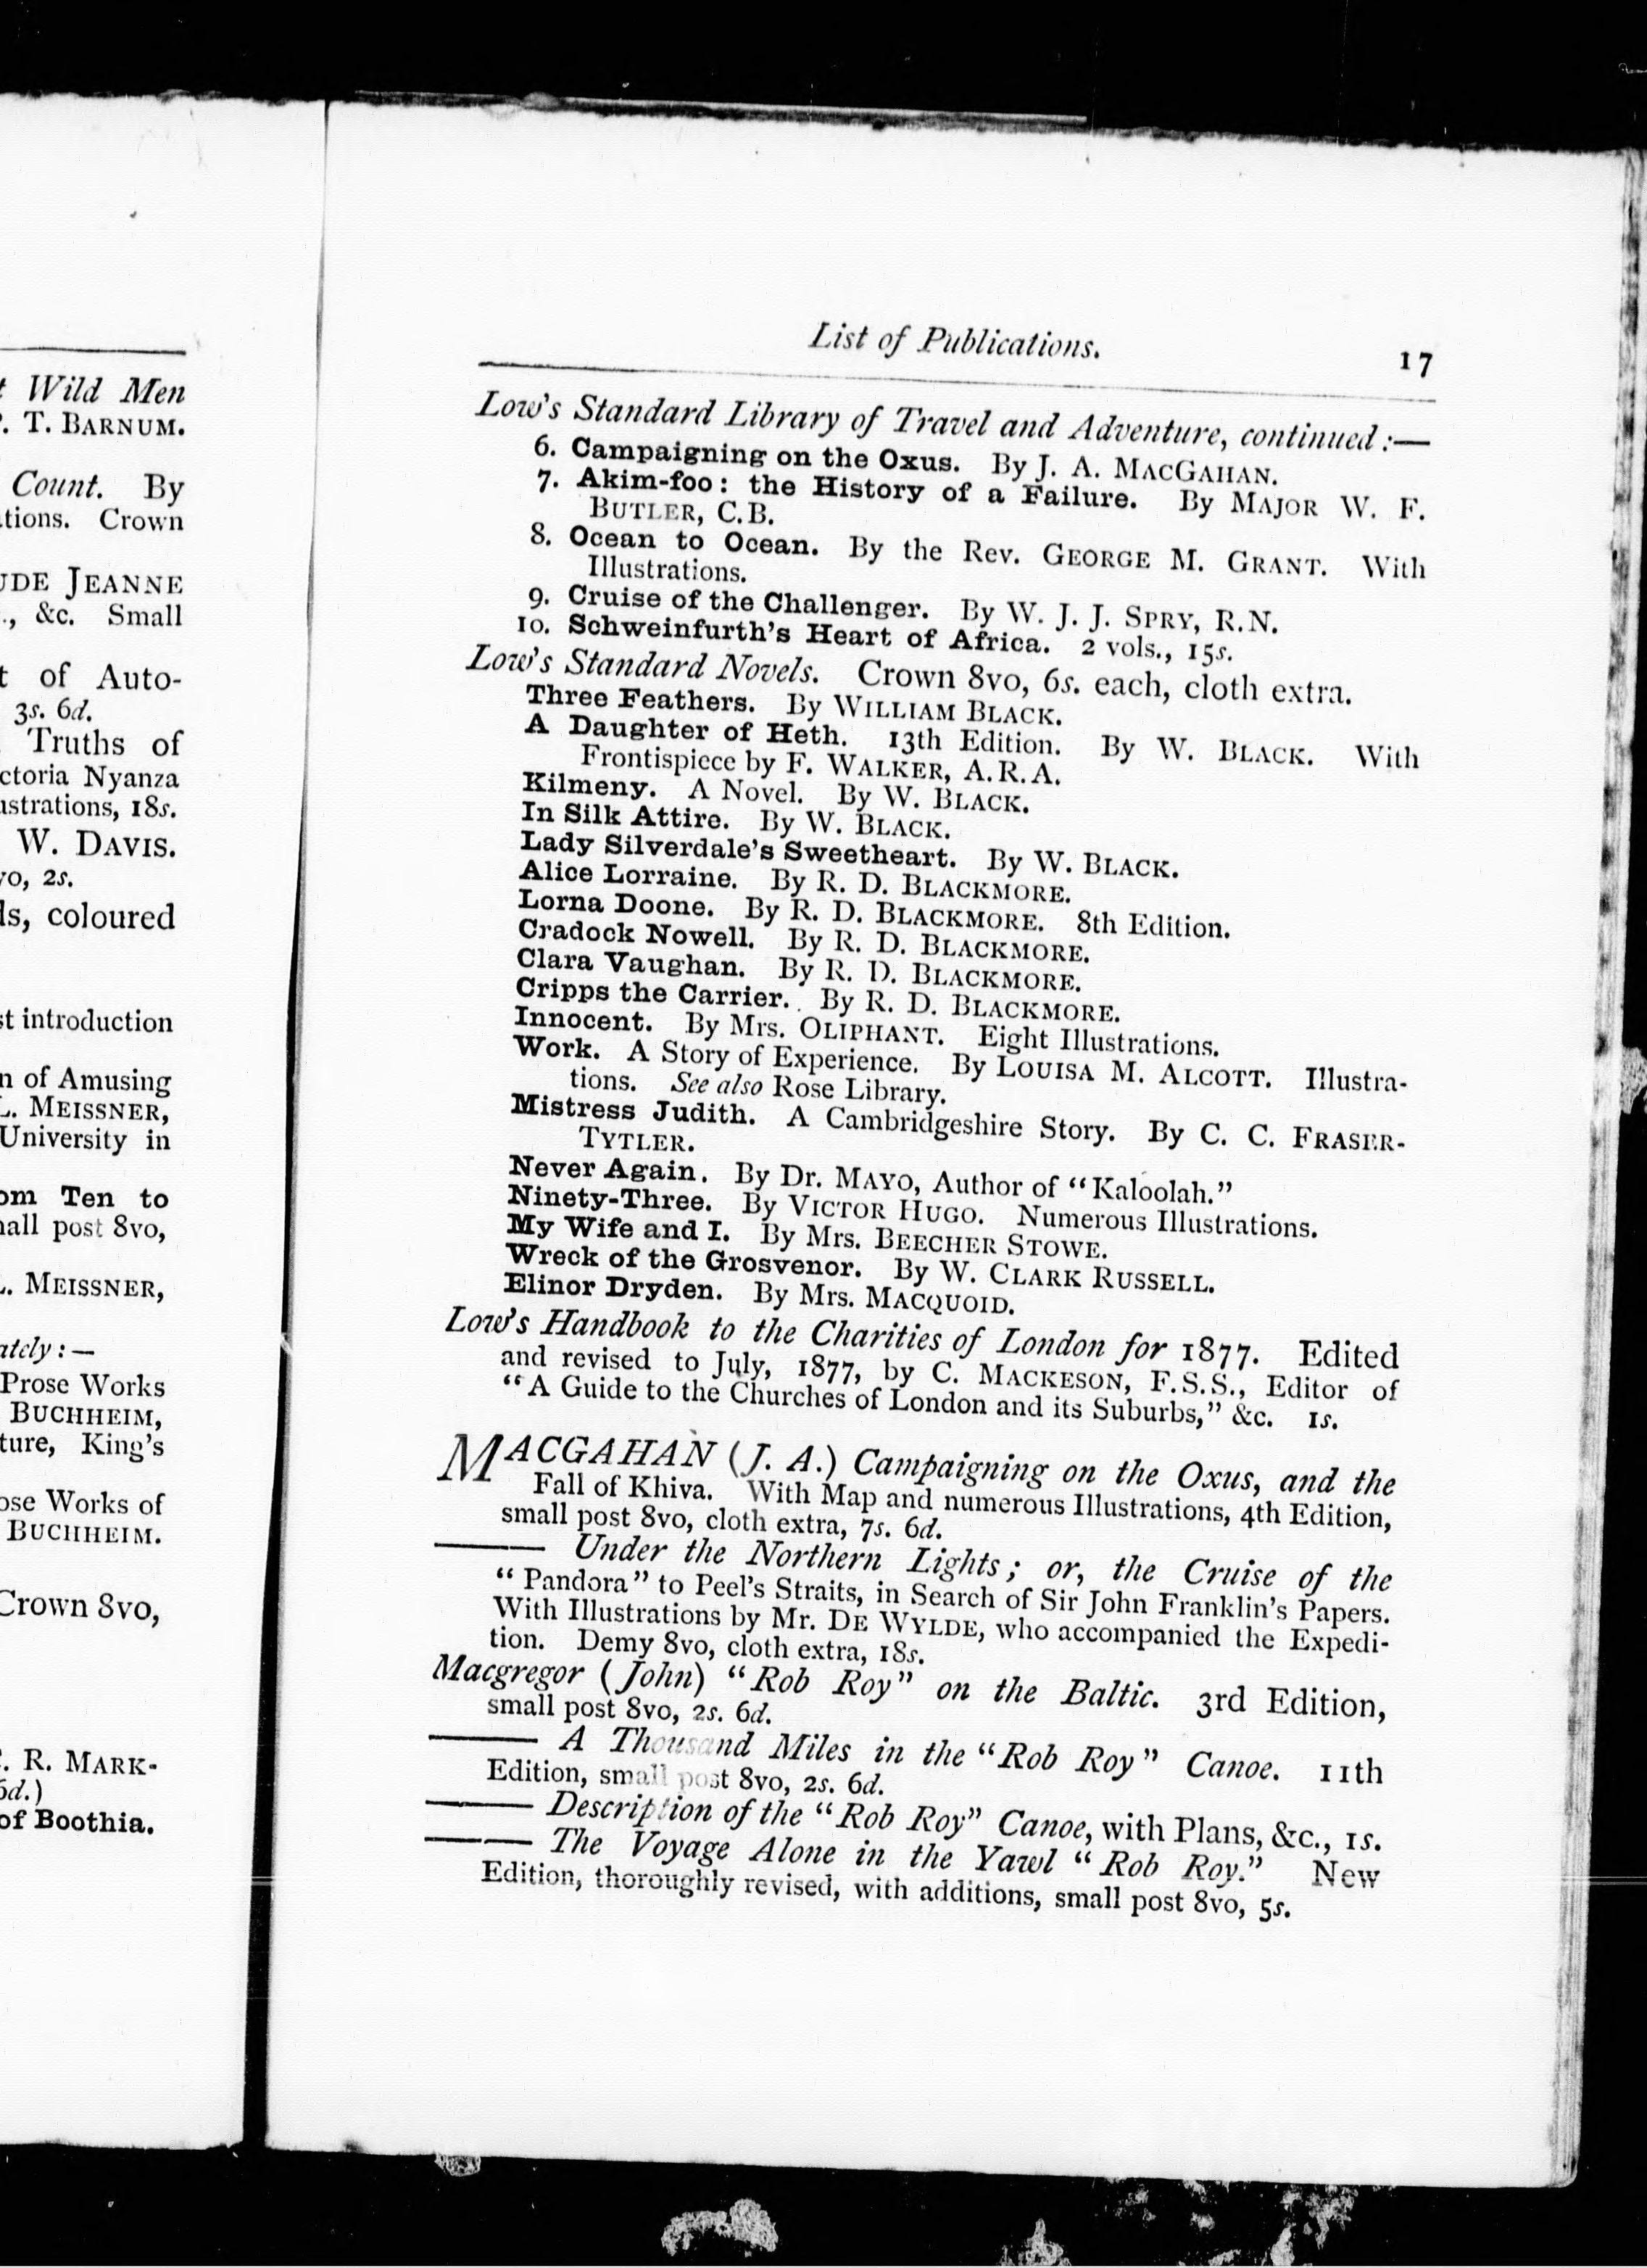 Wild Men
T. BARNUM.
Count. By
tions. Crown
JEANNE
&c. Small
of Auto-
3s. 6d.
Truths of
ctoria Nyanza
ustrations, 18s.
W. DAVIS.
vo, 2s.
coloured
introduction
of Amusing
L. MEISSNER,
University in
om Ten to
post 8vo,
MEISSNER,
ately:—
Prose Works
BUCHHEIM,
ture, King's
ose Works of
BUCHHEIM.
Crown 8vo,
R. MARK-
6d.)
of Boothia.
List of Publications. 17
Low's Standard Library of Travel and Adventure, continued:—
6. Campaigning on the Oxus. By J. A. MACGAHAN.
7. Akim-foo: the History of a Failure. By MAJOR W. F.
BUTLER, C.B.
8. Ocean to Ocean. By the Rev. GEORGE M. GRANT. With
Illustrations.
9. Cruise of the Challenger. By W. J. J. SPRY, R.N.
10. Schweinfurth's Heart of Africa. 2 vols., 15s.
Low's Standard Novels. Crown 8vo, 6s. each, cloth extra.
Three Feathers. By WILLIAM BLACK.
A Daughter of Heth. 13th Edition. By W. BLACK. With
Frontispiece by F. WALKER, A.R.A.
Kilmeny. A Novel. By W. BLACK.
In Silk Attire. By W. BLACK.
Lady Silverdale's Sweetheart. By W. BLACK.
Alice Lorraine. By R. D. BLACKMORE.
Lorna Doone. By R. D. BLACKMORE. 8th Edition.
Cradock Nowell. By R. D. BLACKMORE.
Clara Vaughan. By R. D. BLACKMORE.
Cripps the Carrier. By R. D. BLACKMORE.
Innocent. By Mrs. OLIPHANT. Eight Illustrations.
Work. A Story of Experience. By LOUISA M. ALCOTT. Illustra-
tions. See also Rose Library.
Mistress Judith. A Cambridgeshire Story. By C. C. FRASER-
TYTLER.
Never Again. By Dr. MAYO, Author of "Kaloolah."
Ninety-Three. By VICTOR HUGO. Numerous Illustrations.
My Wife and I. By Mrs. BEECHER STOWE.
Wreck of the Grosvenor. By W. CLARK RUSSELL.
Elinor Dryden. By Mrs. MACQUOID.
Low's Handbook to the Charities of London for 1877. Edited
and revised to July, 1877, by C. MACKESON, F.S.S., Editor of
"A Guide to the Churches of London and its Suburbs," &c. 1s.
MACGAHAN (J. A.) Campaigning on the Oxus, and the
Fall of Khiva. With Map and numerous Illustrations, 4th Edition,
small post 8vo, cloth extra, 7s. 6d.
——— Under the Northern Lights; or, the Cruise of the
"Pandora" to Peel's Straits, in Search of Sir John Franklin's Papers.
With Illustrations by Mr. DE WYLDE, who accompanied the Expedi-
tion. Demy 8vo, cloth extra, 18s.
Macgregor (John) "Rob Roy" on the Baltic. 3rd Edition,
small post 8vo, 2s. 6d.
——— A Thousand Miles in the "Rob Roy" Canoe. 11th
Edition, small post 8vo, 2s. 6d.
——— Description of the "Rob Roy" Canoe, with Plans, &c., 1s.
——— The Voyage Alone in the Yawl "Rob Roy." New
Edition, thoroughly revised, with additions, small post 8vo, 5s.